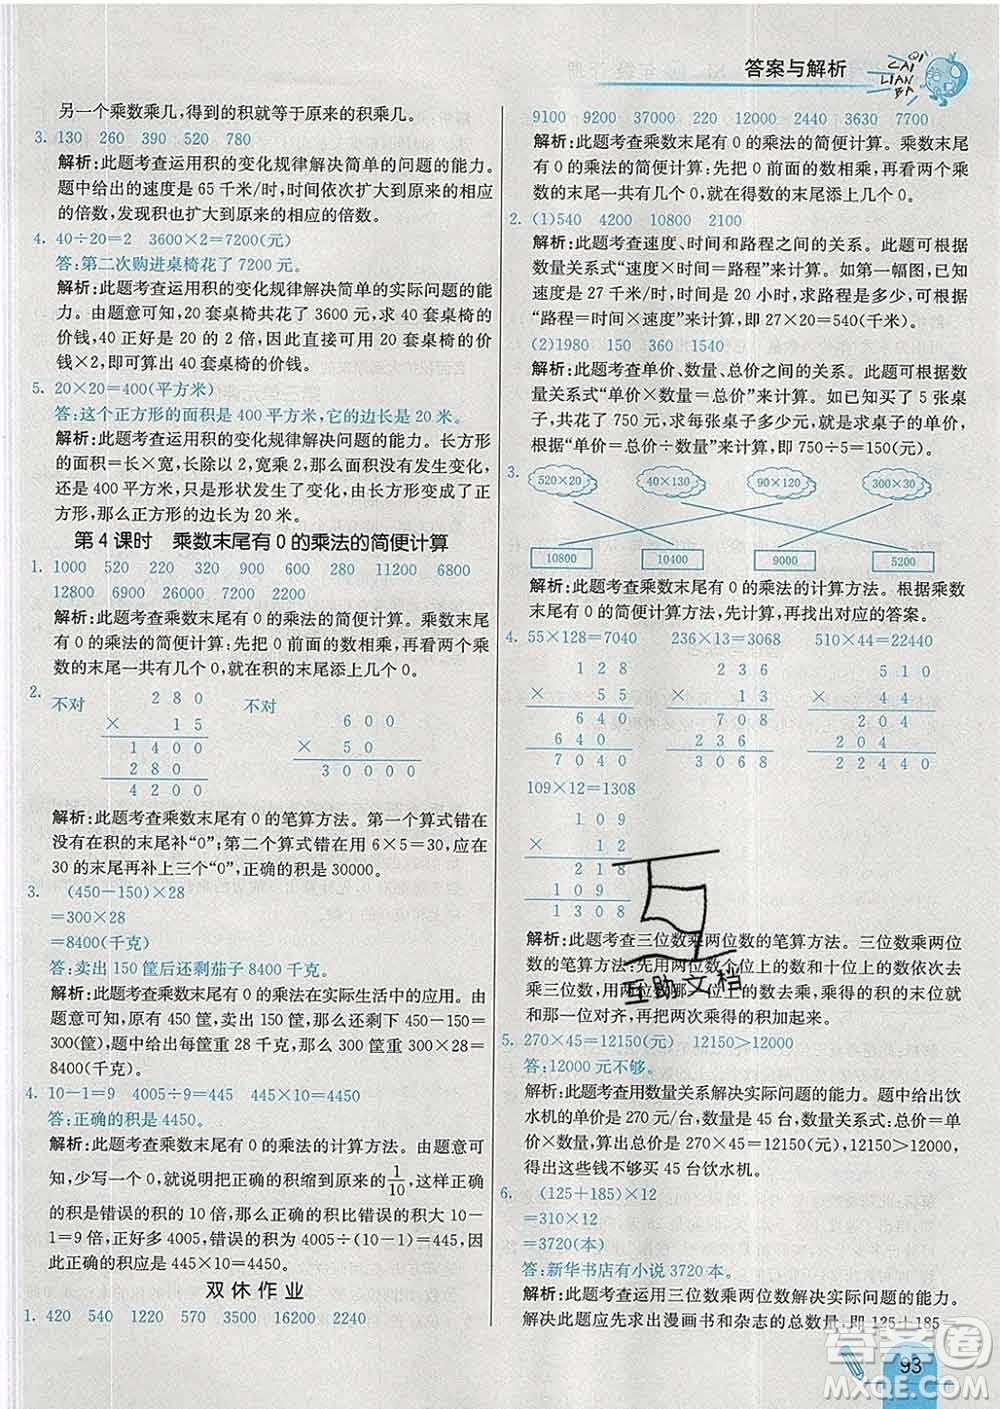 QI
CAI
LIAN
BA
答案与解析
另一个乘数乘几，得到的积就等于原来的积乘几。
3. 130 260 390 520 780
解析:此题考查运用积的变化规律解决简单的问题的能力。
题中给出的速度是 65 千米/时,时间依次扩大到原来的相应
的倍数、发现积也扩大到原来的相应的倍数。
4. 40÷20=2 3600×2=7200(元)
答:第二次购进桌椅花了 7200 元。
解析:此题考查运用积的变化规律解决简单的实际问题的能
力。由题意可知,20 套桌椅共花了 3600 元,求 40 套桌椅的
价钱,40 正好是 20 的 2 倍,因此直接可用 20 套桌椅的价
钱×2,即可算出 40 套桌椅的价钱。
5. 20×20=400(平方米)
答:这个正方形的面积是 400 平方米,它的边长是 20 米。
解析:此题考查运用积的变化规律解决问题的能力。长方形
的面积=长×宽,长除以 2,宽乘 2,那么面积没有发生变化,
还是 400 平方米,只是形状发生了变化,由长方形变成了正
方形,那么正方形的边长为 20 米。
第 4 课时 乘数末尾有 0 的乘法的简便计算
1. 1000 520 220 320 600 280 11200 6800
12800 6900 26000 7200 2200
解析:此题考查乘数末尾有 0 的乘法的简便计算。乘数末尾
有 0 的乘法的简便计算:先把 0 前面的数相乘,再看两个乘
数的末尾一共有几个 0,就在得数的末尾添上几个 0。
2. 不对 2 8 0 不对 6 0 0
× 1 5 × 5 0
1 4 0 0 3 0 0 0 0
2 8 0
4 2 0 0
解析:此题考查乘数末尾有 0 的笔算方法。第一个算式错在
没有在积的末尾补“0”;第二个算式错在用 6×5=30,应在
30 的末尾再补上三个“0”,正确的积是 30000。
3. (450-150)×28
=300×28
=8400(千克)
答:卖出 150 筐后还剩茄子 8400 千克。
解析:此题考查乘数末尾有 0 的乘法在实际生活中的应用。由
题意可知,原有 450 筐,卖了 150 筐,那么还剩下 450-150=
300(筐),题中给出每筐重 28 千克,求 300 筐重多少,即 300×28=
8400(千克)。
4. 10-1=9 4005÷9=445 445×10=4450
答:正确的积是 4450。
解析:此题考查乘数末尾有 0 的乘法的计算方法。由题意可
知,少写一个 0,就说明把正确的积缩到原来的1/10,正确的积
是错误的积的 10 倍,那么正确的积比错误的积大 10-
1=9 倍,正好多 4005,错误的积为 4005÷(10-1)=445,
正确的积应是 445×10=4450。
双休作业
1. 420 540 1220 570 3500 16000 2240
9100 9200 37000 220 12000 2440 3630 7700
解析:此题考查乘数末尾有 0 的乘法的简便计算。乘数末尾
有 0 的乘法的计算方法:先把 0 前面的数相乘,再看两个乘
数的末尾一共有几个 0,就在得数的末尾添上几个 0。
2. (1)540 4200 10800 2100
解析:此题考查速度、时间和路程之间的关系。此题可根据
数量关系式“速度×时间=路程”来计算。如第一幅图,已知
速度是 27 千米/时,时间是 20 小时,求路程是多少,可根据
“路程=时间×速度”来计算,即 27×20=540(千米)。
(2)1980 150 360 1540
解析:此题考查单价、数量、总价之间的关系。此题可根据
数量关系式“单价×数量=总价”来计算。如已知买了 5 张桌
子,共花了 750 元,求每张桌子多少元,就是求桌子的单价,可
根据“单价=总价÷数量”来计算,即 750÷5=150(元)。
3. 520×20 40×130 90×120 300×30
10800 10400 9000 5200
解析:此题考查乘数末尾有 0 的乘法的计算方法。根据乘数
末尾有 0 的简便计算方法,先计算,再找出对应的答案。
4. 55×128=7040 236×13=3068 510×44=22440
1 2 8 2 3 6 5 1 0
× 5 5 × 1 3 × 4 4
6 4 0 7 0 8 2 0 4
6 4 0 2 3 6 2 0 4
7 0 4 0 3 0 6 8 2 2 4 4 0
109×12=1308
1 0 9
× 1 2
2 1 8
1 0 9
1 3 0 8
解析:此题考查三位数乘两位数的笔算方法。三位数乘两位
数的计算方法:先用两位数个位上的数和十位上的数依次去
乘三位数,用两位数哪一位上的数去乘,乘得的积的末位就
和那一位对齐,再把两次乘得的积加起来。
互助文档
5. 270×45=12150(元) 12150>12000
答:12000 元不够。
解析:此题考查用数量关系解决实际问题的能力。题中给出饮
水机的单价是 270 元/台,数量是 45 台,数量关系式:总价=单
价×数量,那么总价是 270×45=12150(元),12150>12000,
所以这些钱不够买 45 台饮水机。
6. (125+185)×12
=310×12
=3720(本)
答:新华书店有小说 3720 本。
解析:此题考查运用三位数乘两位数解决实际问题的能力。
解决此题应先求出漫画书和杂志的总数量,即 125+185=
93
答案圈
MXQE.COM